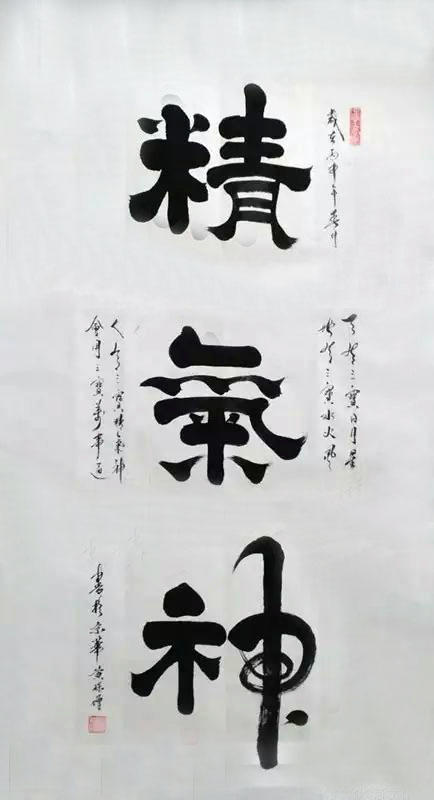 精
氣
神
歲在丙申年春月
天有三寶日月星
地有三寶水火風
人有三寶精氣神
會用三寶萬事通
書於京華